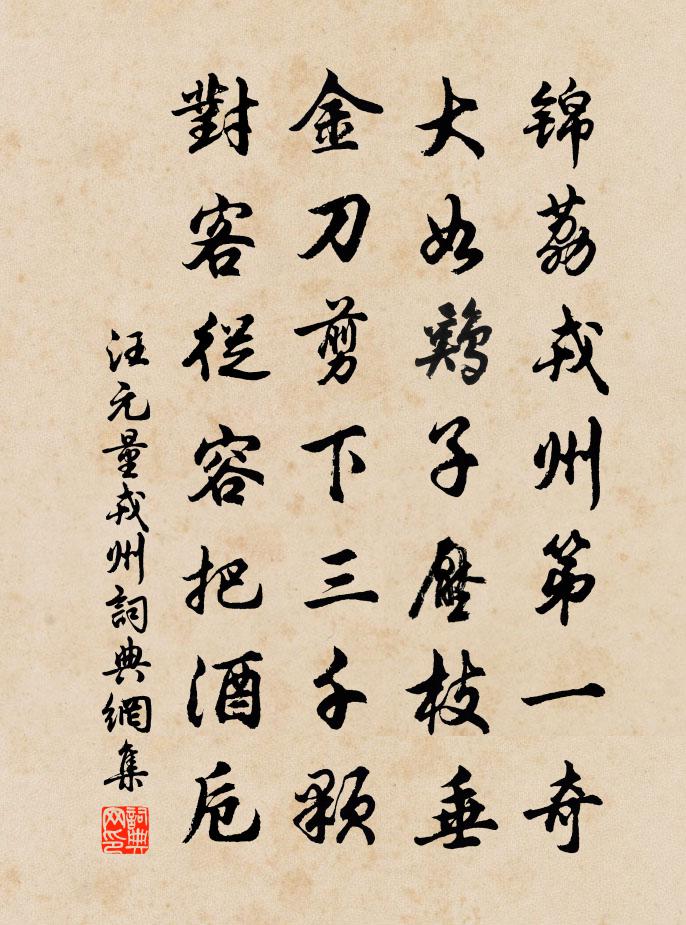 锦荔戎州第一奇
大如鸡子壓枝垂
金刀剪下三千顆
對客從容把酒卮
汪元量戎州詞典網集
詞典網印